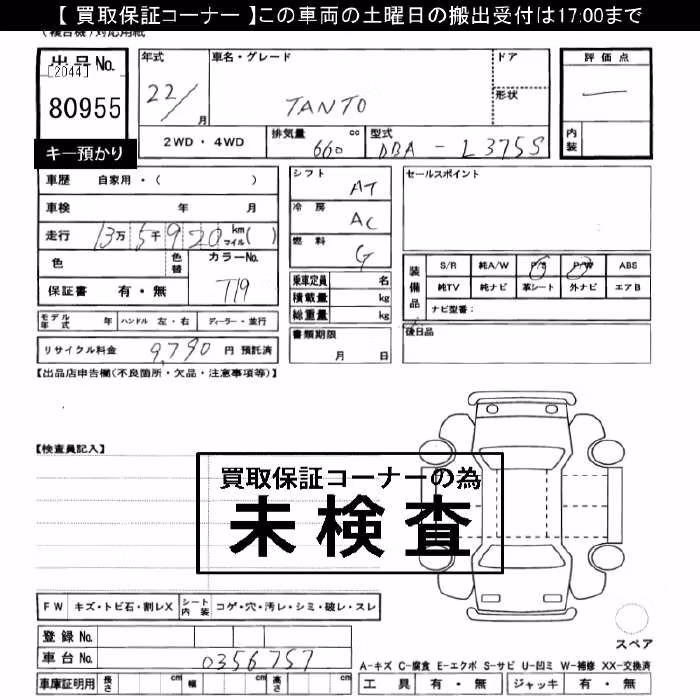 【 買取保証コーナー 】この車両の土曜日の搬出受付は17:00まで
(複合機)対応用紙
出品No. 年式 車名・グレード ドア 評価点
[2044]
80955 22/月 TANTO 形状 —
2WD・4WD 排気量 660 cc 型式 DBA - L375S 内装
キー預かり
車歴 自家用・( ) シフト AT セールスポイント
車検 年 月 冷房 AC
走行 13万5千920 km マイル( ) 燃料 G
色 色替 カラーNo. T19
保証書 有・無
装備品 S/R 純A/W P/S P/W ABS
純TV 純ナビ 革シート 外ナビ エアB
ナビ型番:
乗車定員 名
積載量 kg
総重量 kg
モデル年式 年 ハンドル 左・右 ディーラー・並行
書類期限 月 日
後日品
リサイクル料金 9,790 円 預託済
【出品店申告欄(不良箇所・欠品・注意事項等)】
【検査員記入】
買取保証コーナーの為
未検査
FW キズ・トビ石・割レX シート内装 コゲ・穴・汚レ・シミ・破レ・スレ
スペア
登録No.
車台No. 0356757
A-キズ C-腐食 E-エクボ S-サビ U-凹ミ W-補修 XX-交換済
車庫証明用 長さ cm 幅 cm 高さ cm 工具 有・無 ジャッキ 有・無